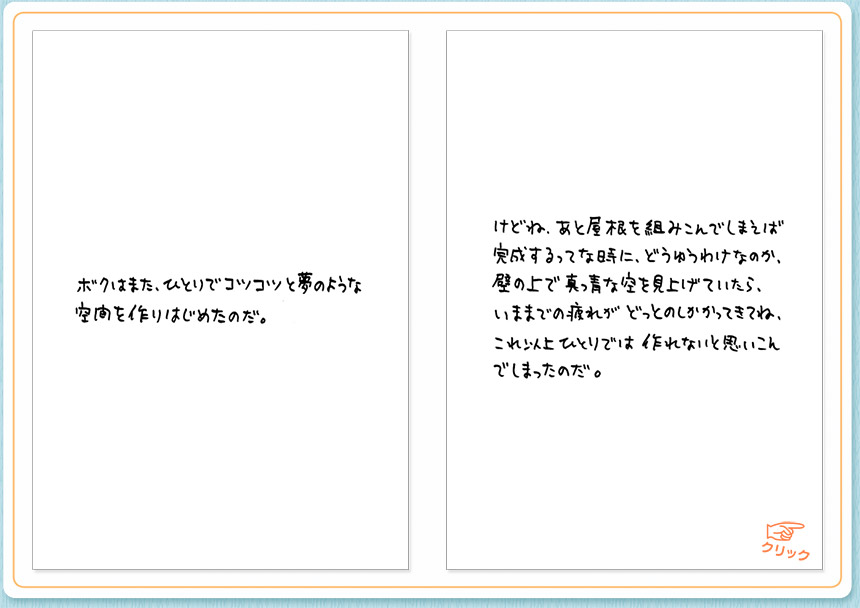 ボクはまた、ひとりでコツコツと夢のような
空間を作りはじめたのだ。
けどね、あと屋根を組みこんでしまえば
完成するってな時に、どうゆうわけなのか、
壁の上で真っ青な空を見上げていたら、
いままでの疲れがどっとのしかかってきてね、
これ以上ひとりでは作れないと思いこん
でしまったのだ。
クリック